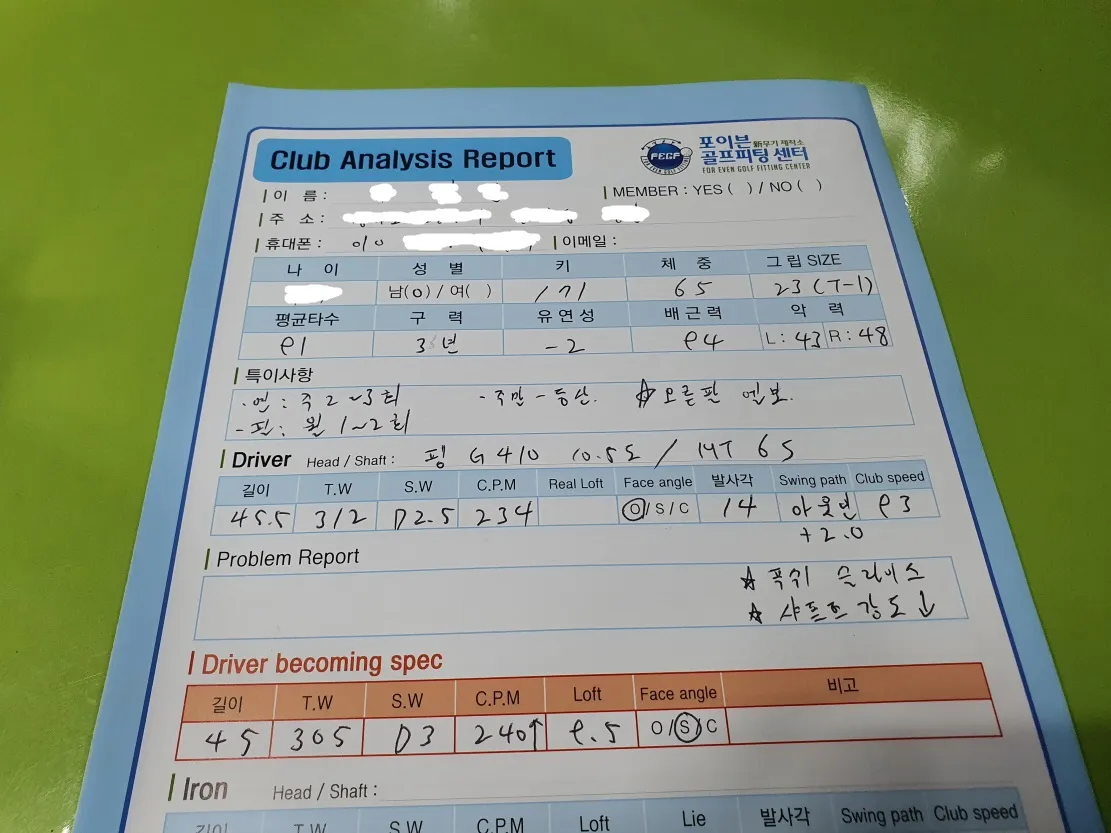 Club Analysis Report
FEGF
FOR EVEN GOLF FITTING
포이븐 新무기 제작소
골프피팅 센터
FOR EVEN GOLF FITTING CENTER
이 름 :
MEMBER : YES ( ) / NO ( )
주 소 :
휴대폰 : 010
이메일 :
나 이 성 별 키 체 중 그 립 SIZE
남(O) / 여( ) 171 65 23 (T-1)
평균타수 구 력 유 연 성 배 근 력 악 력
91 3년 -2 94 L : 43 R : 48
특이사항
· 연 : 주 2~3회 - 주말 - 등산. ☆ 오른팔 엘보.
- 필 : 월 1~2회
Driver Head / Shaft : 핑 G410 10.5도 / MT 6S
길이 T.W S.W C.P.M Real Loft Face angle 발사각 Swing path Club speed
45.5 312 D2.5 234 O / S / C 14 아웃인 93
+2.0
Problem Report
☆ 푹쉬 슬라이스
☆ 샤프트 강도 ↓
Driver becoming spec
길이 T.W S.W C.P.M Loft Face angle 비고
45 305 D3 240↑ 9.5 O / S / C
Iron Head / Shaft :
길이 T.W S.W C.P.M Loft Lie 발사각 Swing path Club speed